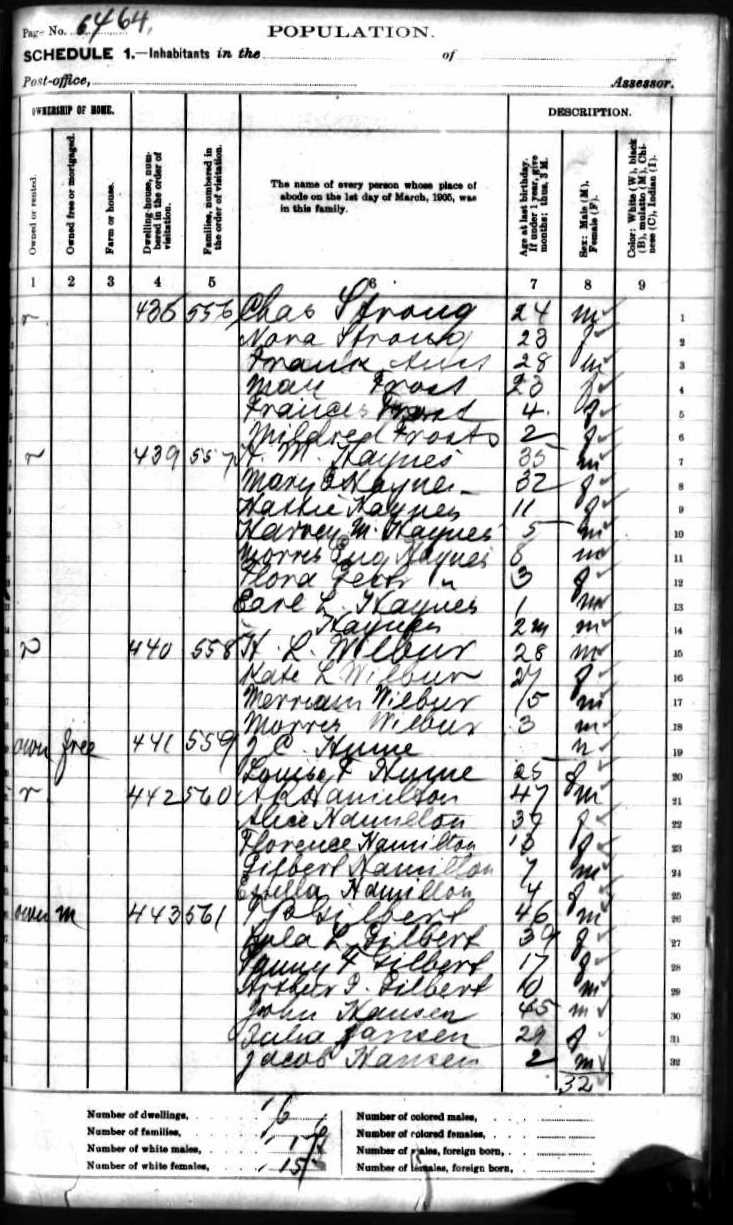 Page No. 6464.
POPULATION.
SCHEDULE 1.—Inhabitants in the of
Post-office, Assessor.
OWNERSHIP OF HOME. DESCRIPTION.
Owned or rented.
Owned free or mortgaged.
Farm or house.
Dwelling-house, numbered in the order of visitation.
Families, numbered in the order of visitation.
The name of every person whose place of
abode on the 1st day of March, 1905, was
in this family.
Age at last birthday. If under 1 year, give months: thus, 3 M.
Sex: Male (M), Female (F).
Color: White (W), black (B), mulatto (M), Chinese (C), Indian (I).
1 2 3 4 5 6 7 8 9
r 436 556 Chas Strong 24 m 1
Nora Strong 23 f 2
Frank 28 m 3
May Frost 23 f 4
Frances Frost 4 f 5
Mildred Frosts 2 f 6
r 439 557 A. M. Haynes 35 m 7
Mary Haynes 32 f 8
Hattie Haynes 11 f 9
Harvey M. Haynes 5 m 10
Morris Eug Haynes 6 m 11
Flora " 3 f 12
Earl L. Haynes 1 m 13
Haynes 2m m 14
r 440 558 H. L. Wilbur 28 m 15
Kate L Wilbur 27 f 16
Merriam Wilbur 5 m 17
Morris Wilbur 3 m 18
own free 441 559 J. C. Hume 19
Louise F Hume 25 f 20
r 442 560 A R Hamilton 47 m 21
Alice Hamilton 39 f 22
Florence Hamilton 13 f 23
Gilbert Hamilton 7 m 24
Estella Hamilton 4 f 25
own m 443 561 Gilbert 46 m 26
Lula L. Gilbert 39 f 27
Fanny F Gilbert 17 f 28
Arthur I. Gilbert 10 m 29
John Hansen 45 m 30
Julia Hansen 29 f 31
Jacob Hansen 2 m 32
32
Number of dwellings, 6 Number of colored males,
Number of families, Number of colored females,
Number of white males, 17 Number of males, foreign born,
Number of white females, 15 Number of females, foreign born,